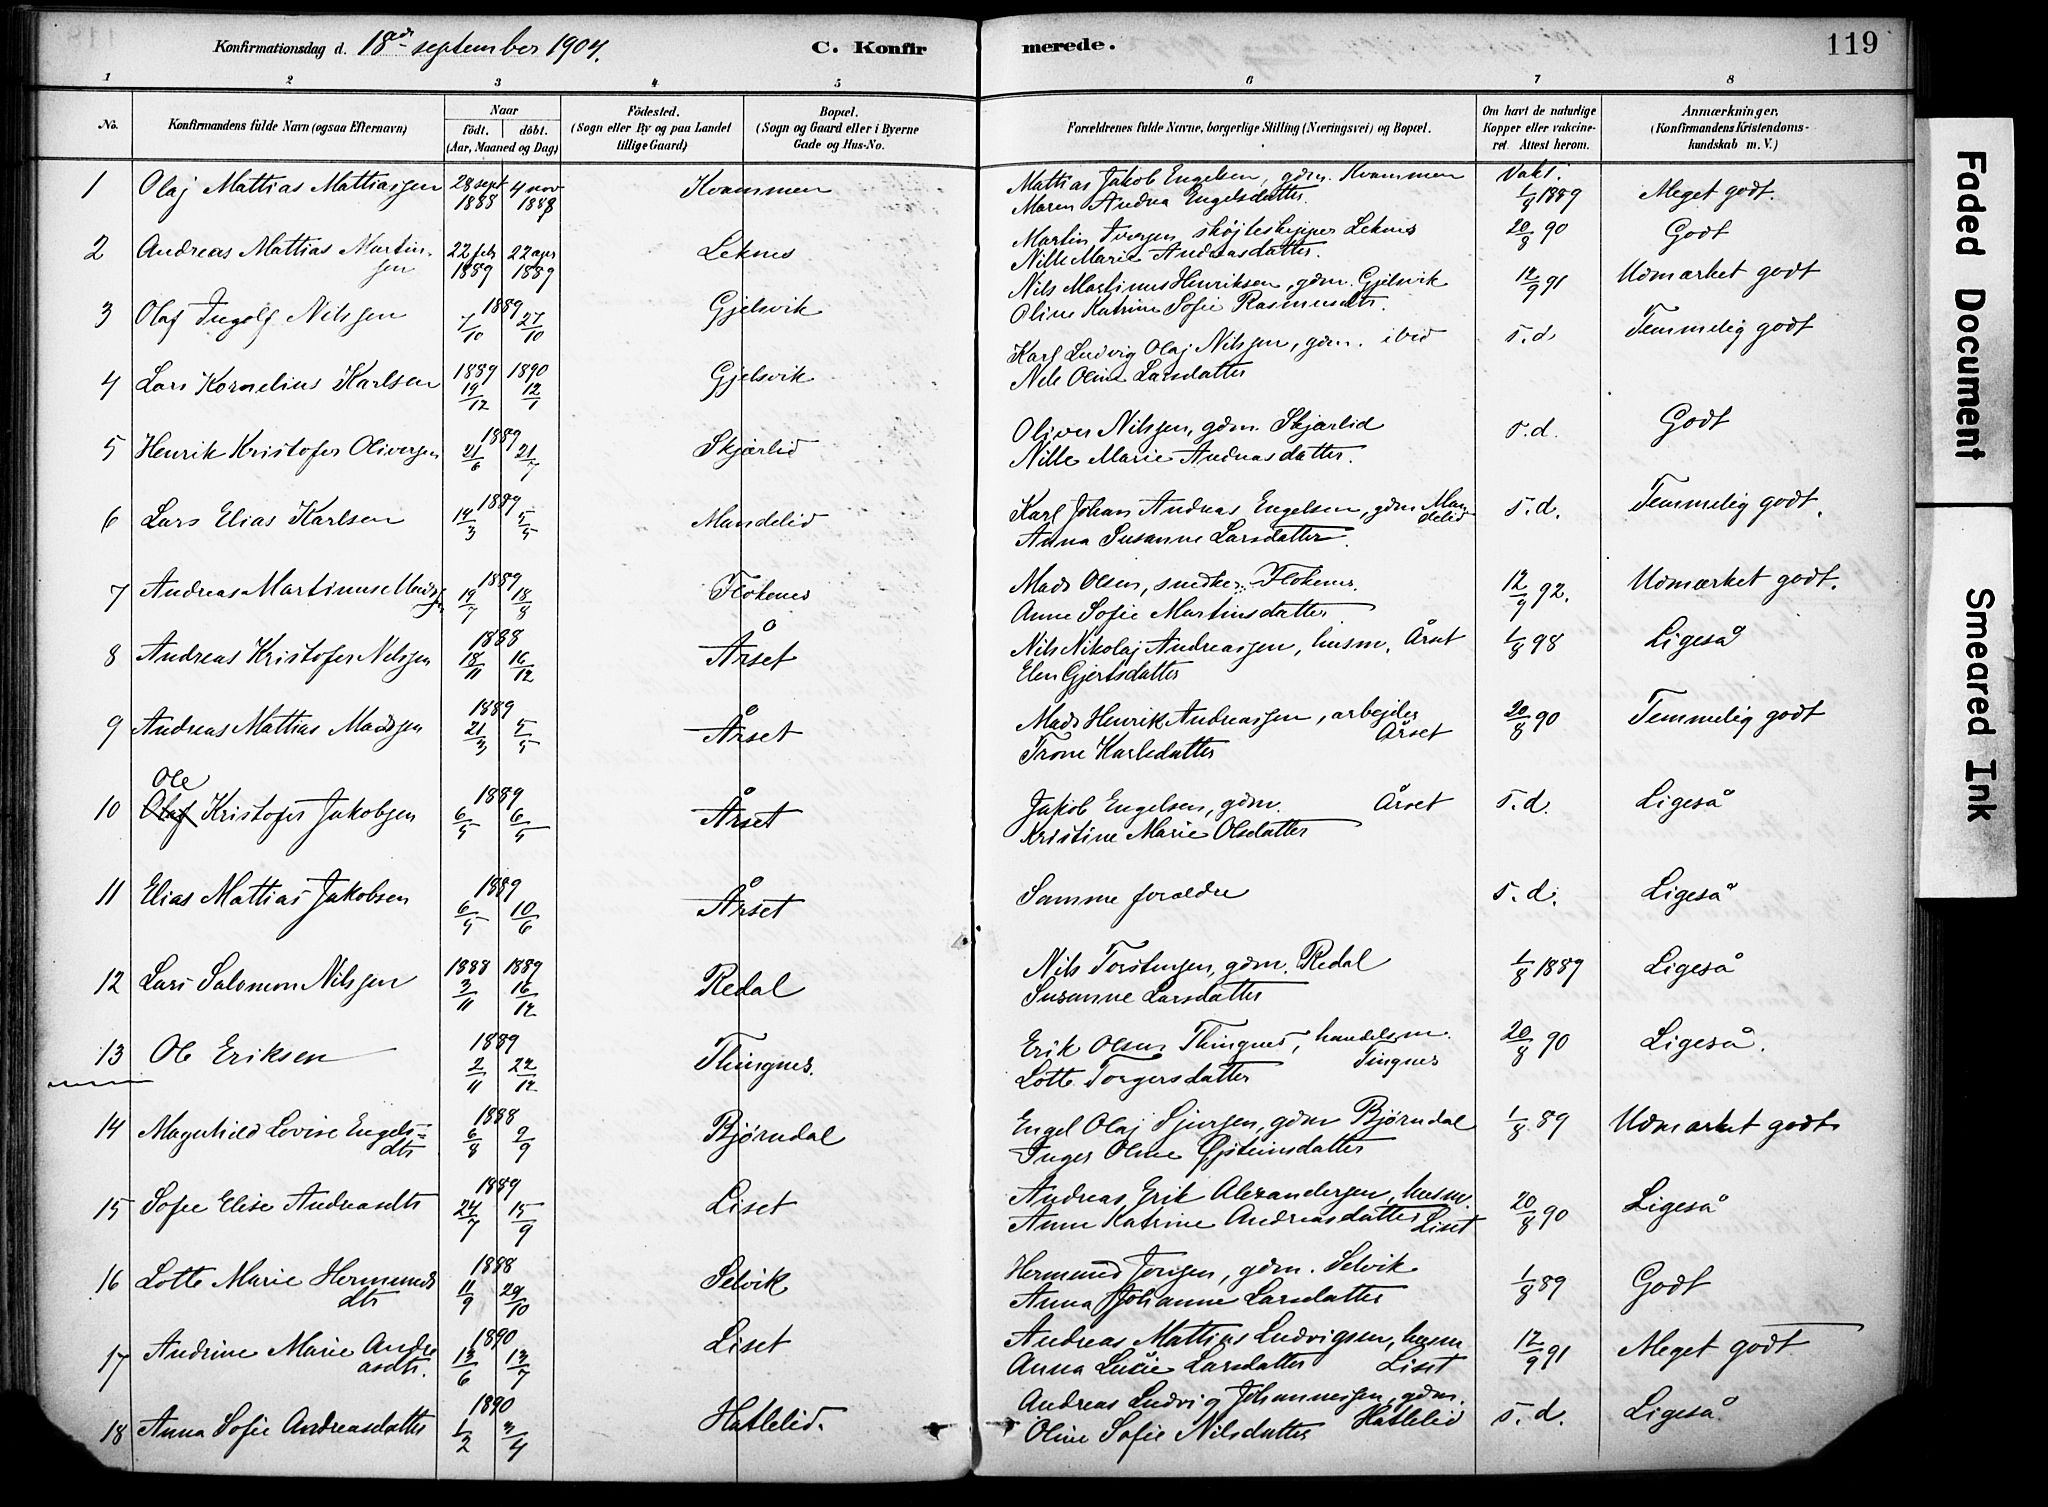 Konfirmationsdag d. 18de september 1904. C. Konfirmerede. 119
1 2 3 4 5 6 7 8
No. Konfirmandens fulde Navn (ogsaa Efternavn) Naar födt. döbt. (Aar, Maaned og Dag) Födested. (Sogn eller By og paa Landet tillige Gaard) Bopæl. (Sogn og Gaard eller i Byerne Gade og Hus-No. Forældrenes fulde Navne, borgerlige Stilling (Næringsvei) og Bopæl. Om havt de naturlige Kopper eller vakcineret. Attest herom. Anmærkninger. (Konfirmandens Kristendomskundskab m. V.)
1 Olaj Mattias Mattiassen 28 sept 1888 4 nov 1888 Kvammen Mattias Jakob Engelsen, gdm. Kvammen Vakt. 1/8 1889 Meget godt.
Maren Andrea Engelsdatter.
2 Andreas Mattias Martinsen 22 feb 1889 22 apr 1889 Leknes Martin Iversen, skøjteskipper Leknes 20/8 90 Godt
Nille Marie Andreasdatter.
3 Olaf Ingolf Nilssen 1889 7/10 27/10 Gjelsvik Nils Martinus Henriksen, gdm. Gjelsvik 12/9 91 Udmærket godt
Oline Katrine Sofie Rasmusdtr.
4 Lars Kornelius Karlsen 1889 19/12 1890 12/1 Gjelsvik Karl Ludvig Olaj Nilssen, gdm. ibid s.d Temmelig godt
Nele Oline Larsdatter
5 Henrik Kristofer Oliversen 1889 21/6 21/7 Skjærlid Oliver Nilssen, gdm. Skjærlid s.d. Godt
Nille Marie Andreasdatter.
6 Lars Elias Karlsen 1889 14/3 5/5 Mandelid Karl Johan Andreas Engelsen, gdm Mandelid s.d. Temmelig godt.
Anna Susanne Larsdatter.
7 Andreas Martinus Madssen 1889 19/7 18/8 Flokenes Mads Olsen, snedker Flokenes. 12/9 92. Udmærket godt.
Anne Sofie Martinsdatter
8 Andreas Kristofer Nilssen 1888 18/11 16/12 Årset Nils Nikolaj Andreassen, husm. Årset 1/8 98 Ligeså
Elen Gjertsdatter
9 Andreas Mattias Madssen 1889 21/3 5/5 Årset Mads Henrik Andreassen, arbejder Årset 20/8 90 Temmelig godt
Trone Karlsdatter
10 Ole Olaf Kristofer Jakobsen 1889 6/5 6/5 Årset Jakob Engelsen, gdm. Årset s.d. Ligeså
Kristine Marie Olsdatter
11 Elias Mattias Jakobsen 1889 6/5 10/6 Årset Samme forældre s.d. Ligeså
12 Lars Salomon Nilssen 1888 3/11 1889 16/12 Redal Nils Torstensen, gdm. Redal 1/8 1889 Ligeså
Susanne Larsdatter
13 Ole Eriksen 1889 2/11 22/12 Thingnes. Erik Olsen Thingnes, handelsm. Tingnes 20/8 90 Ligeså.
Lotte Torgersdatter
14 Magnhild Lovise Engelsdtr 1888 6/8 9/9 Bjørndal Engel Olaj Sjursen, gdm Bjørndal 1/8 89 Udmærket godt
Inger Oline Øjsteinsdatter
15 Sofie Elise Andreasdtr 1889 24/7 15/9 Liset Andreas Erik Alexandersen, husm. 20/8 90 Ligeså
Anne Katrine Andreasdatter Liset
16 Lotte Marie Hermundsdtr 1888 11/9 29/10 Selvik Hermund Jorsen, gdm. Selvik 1/8 89 Godt
Anna Johanne Larsdatter
17 Andrine Marie Andreasdtr. 1890 13/6 13/7 Liset Andreas Mattias Ludvigsen, husm 12/9 91 Meget godt
Anna Lucie Larsdatter Liset
18 Anna Sofie Andreasdatter 1890 1/2 3/4 Hatlelid. Andreas Ludvig Johannessen, gdm. Hatlelid s.d. Ligeså
Oline Sofie Nilsdatter
Faded Document
Smeared Ink